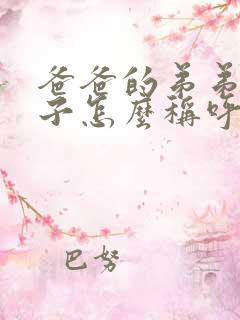 爸爸的弟弟
子怎麼稱呼
巴努